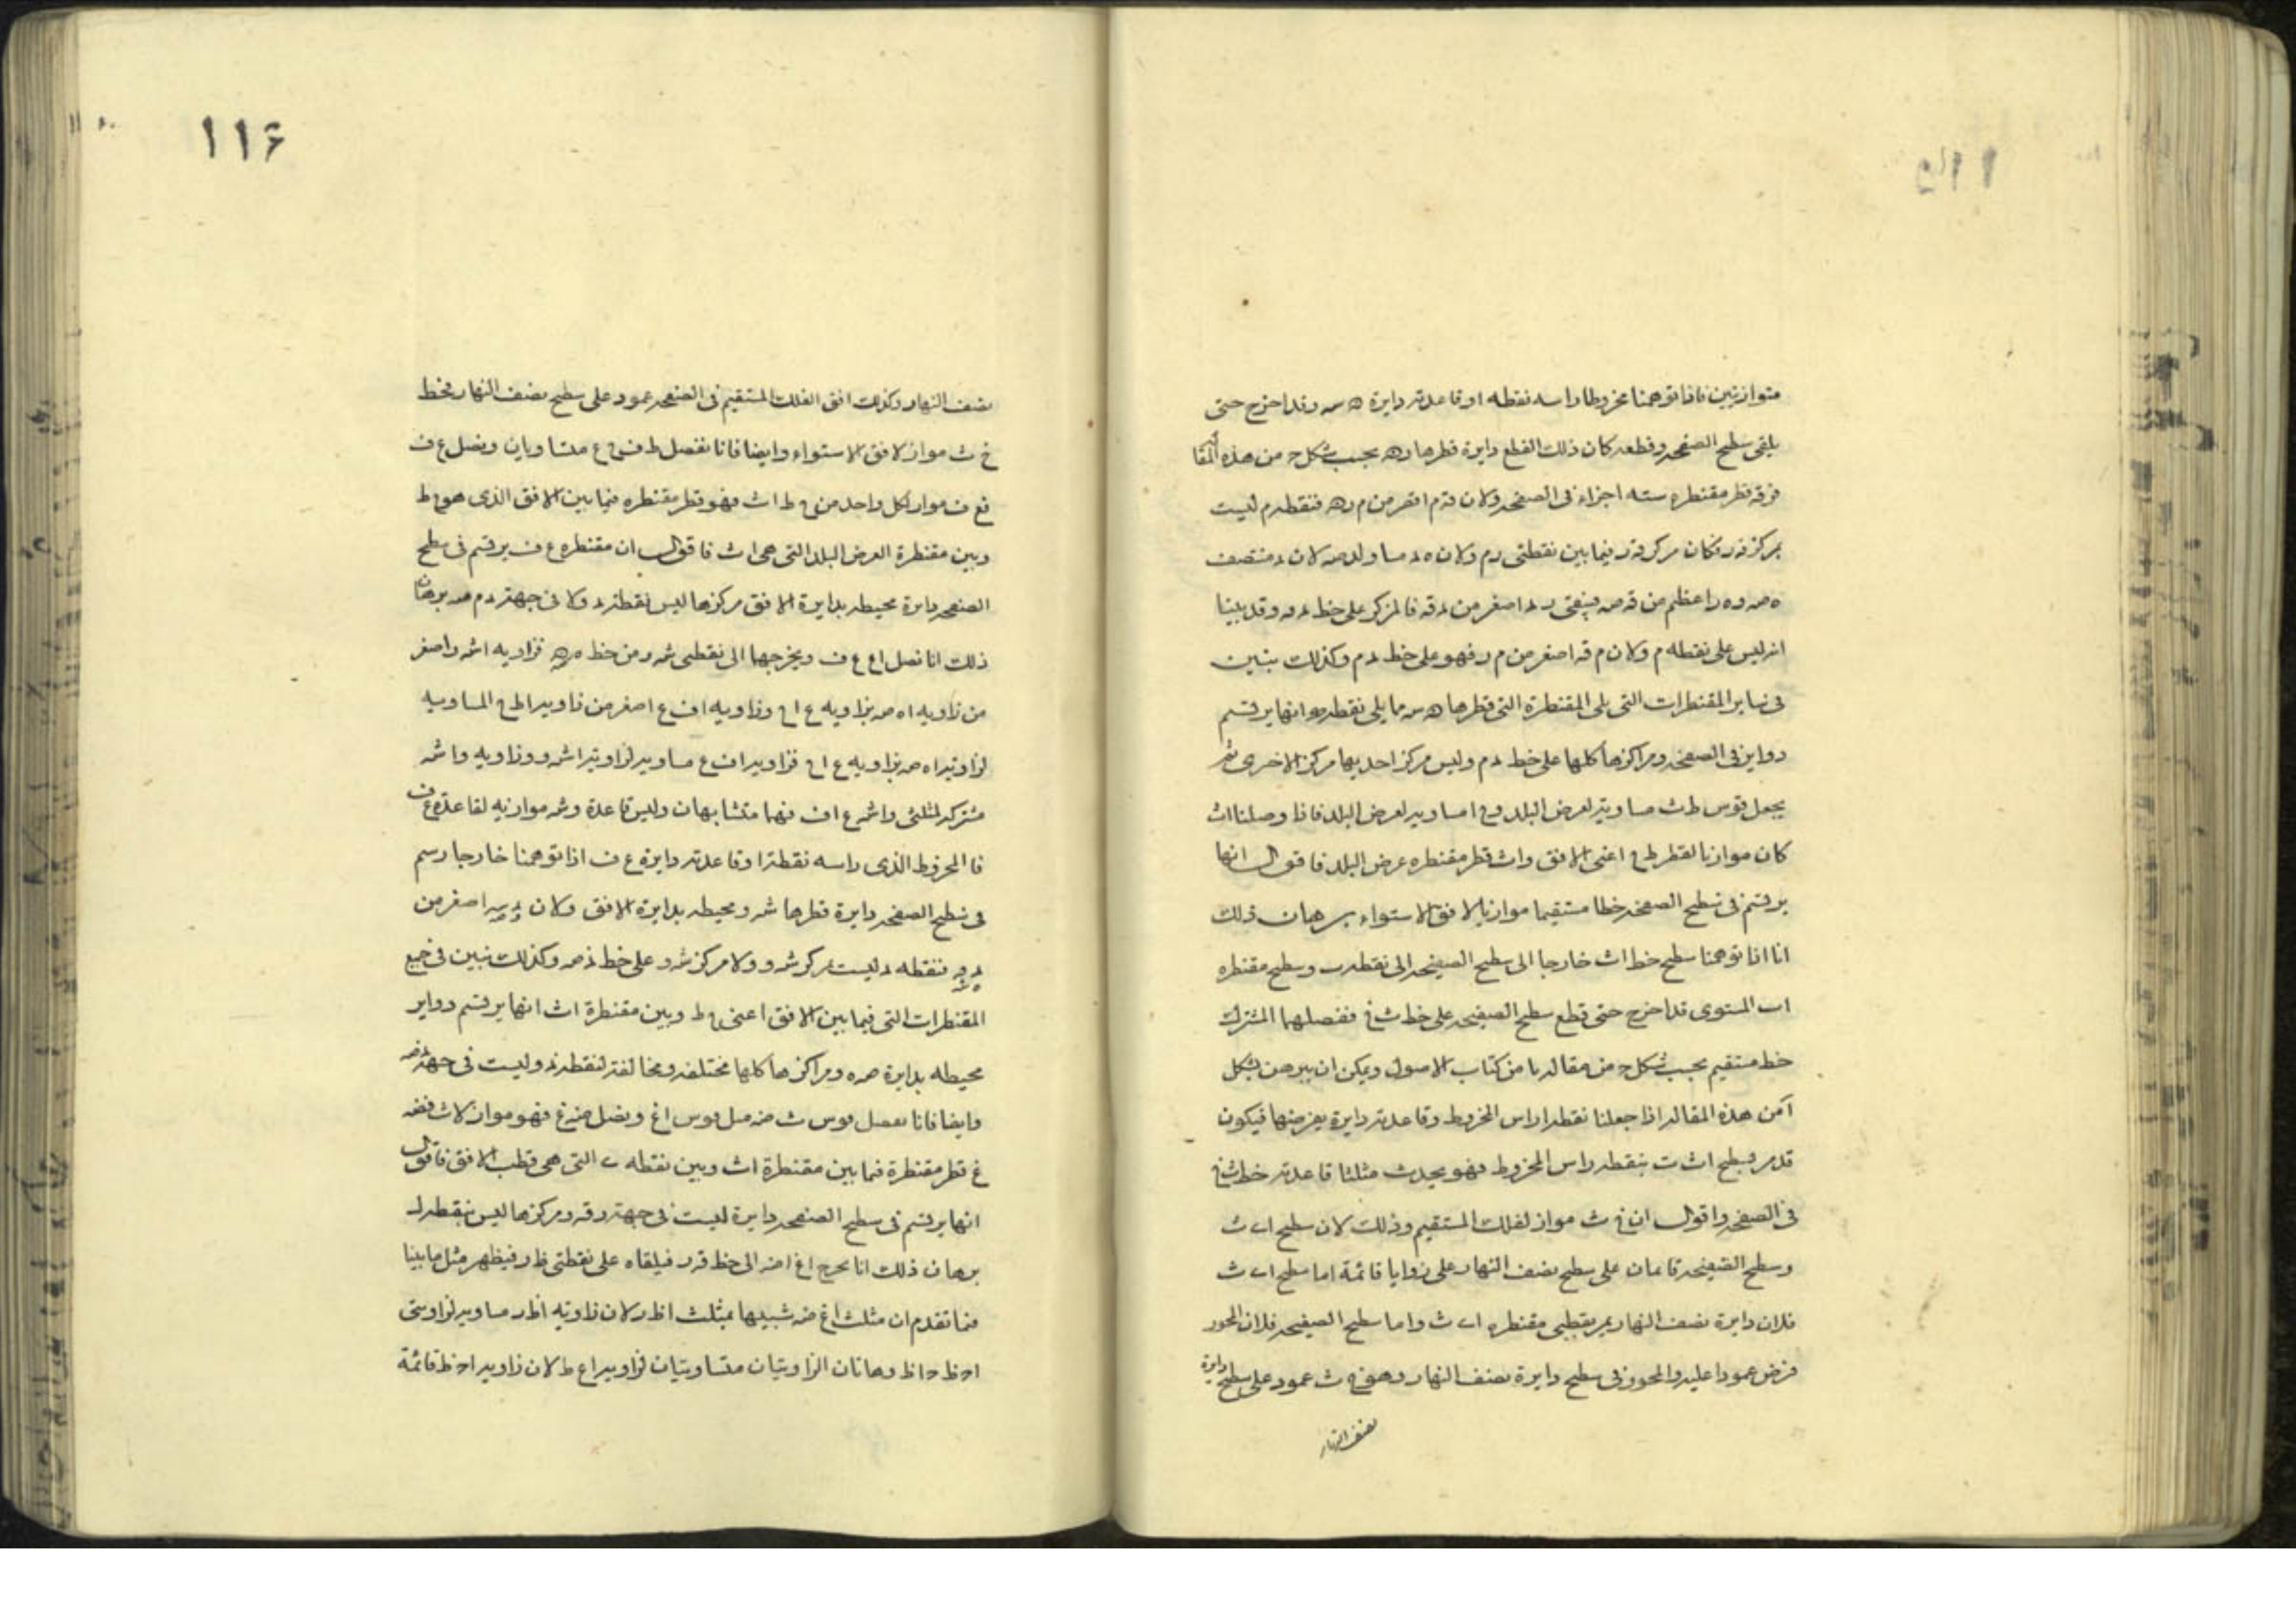 متوازيين فاذا توهمنا مخروطا راسه نقطه ا وقاعدته دايرة ه س وقد اخرج حتى
يلقى سطح الصفحه وقطعه كان ذلك القطع دايرة قطرها ره بحسب شكل ح من هذه المقا
قطر مقنطره سته اجزاء فى الصفحه ولان م اقصر من م ره فنقطه م ليست
بمركز فكان مركز فيما بين نقطتى رم ولان مساو لان منتصف
اعظم من فيبقى اصغر من فالمركز على خط وقد بينا
انه ليس على نقطه م ولان م قه اصغر من م ر فهو على خط د م وكذلك نبين
فى ساير المقنطرات التى يلى المقنطرة التى قطرها ه س مما يلى نقطه انها يرتسم
دواير فى الصفحه ومراكزها كلها على خط د م وليس مركز احديها مركز الاخرى ثم
يجعل قوس ط ث مساويه لعرض البلد و ا مساويه لعرض البلد فاذا وصلنا اث
كان موازيا لقطر ط اعنى الافق واث قطر مقنطره عرض البلد فاقول انها
يرتسم فى سطح الصفحه خطا مستقيما موازيا لافق الاستواء برهان ذلك
انا اذا توهمنا سطح خط اث خارجا الى سطح الصفيحه الى نقطه ب وسطح مقنطره
اب المستوى قد اخرج حتى قطع سطح الصفيحه على خط ث خ ففصلهما المشترك
خط مستقيم بحسب شكل من مقاله يا من كتاب الاصول ويمكن ان يبرهن بشكل
آ من هذه المقاله اذا جعلنا نقطه ا راس المخروط وقاعدته دايرة يعرضها فيكون
قد مر سطح اث ت بنقطه راس المخروط فهو يحدث مثلثا قاعدته خط ث خ
فى الصفحه واقول ان خ ث مواز لفلك المستقيم وذلك لان سطح اى ث
وسطح الصفيحه قايمان على سطح نصف النهار على زوايا قائمة اما سطح اى ث
فلان دايرة نصف النهار يمر بقطبى مقنطره اى ث واما سطح الصفيحه فلان المحور
فرض عمودا عليه والمحور فى سطح دايرة نصف النهار وهو خ ث عمود على سطح دايرة
نصف النهار
١١۶
نصف النهار وكذلك افق الفلك المستقيم فى الصفحه عمود على سطح نصف النهار فخط
خ ث مواز لافق الاستواء وايضا فانا نفصل ط ف ع متساويان ونصل ع ف
فع ف مواز لكل واحد من ط اث فهو قطر مقنطره فيما بين الافق الذى هو ط
وبين مقنطرة العرض البلد التى هى اث فاقول ان مقنطره ع ف يرتسم فى سطح
الصفحه دايرة محيطه بدايرة الافق مركزها ليس نقطة د ولا فى جهة د م برهان
ذلك انا نصل اع ع ف ويخرجهما الى نقطتى ش و من خط فزاويه اش و اصغر
من زاويه اه ص بزاويه ع ا وزاويه اف ع اصغر من زاويه اط المساويه
لزاويه اه ص بزاويه ع ا فزاويه اف ع مساويه لزاويه اش و وزاويه و اش
مشتركه لمثلثى و اش ع اف فهما متشابهان وليس قاعدة و ش موازيه لقاعدة ع ف
فا المخروط الذى راسه نقطة ا وقاعدته دايرة ع ف اذا توهمنا خارجا رسم
فى سطح الصفحه دايرة قطرها ش و محيطه بدايرة الافق ولان اصغر من
فنقطه د ليست مركز ش و ولا مركز ش و على خط وكذلك نبين فى جميع
المقنطرات التى فيما بين الافق اعنى ط وبين مقنطرة اث انها يرتسم دواير
محيطه بدايرة ومراكزها كلها مختلفه ومخالفة لنقطة د وليست فى جهة
وايضا فانا نفصل قوس ث ض مثل قوس اغ ونصل ض غ فهو مواز لاث فض
غ قطر مقنطرة فيما بين مقنطرة اث وبين نقطه ى التى هى قطب الافق فاقول
انها يرتسم فى سطح الصفحه دايرة ليست فى جهة ومركزها ليس بنقطة
برهان ذلك انا نخرج اغ اض الى خط فيلقاه على نقطتى ظ ر فيظهر مثل ما بينا
فيما تقدم ان مثلث اغ ض شبيها بمثلث اظ ر لان زاويه اظ ر مساويه لزاويتى
اح ظ ح اظ وهاتان الزاويتان متساويتان لزاويه اع ط لان زاويه اح ظ قائمة